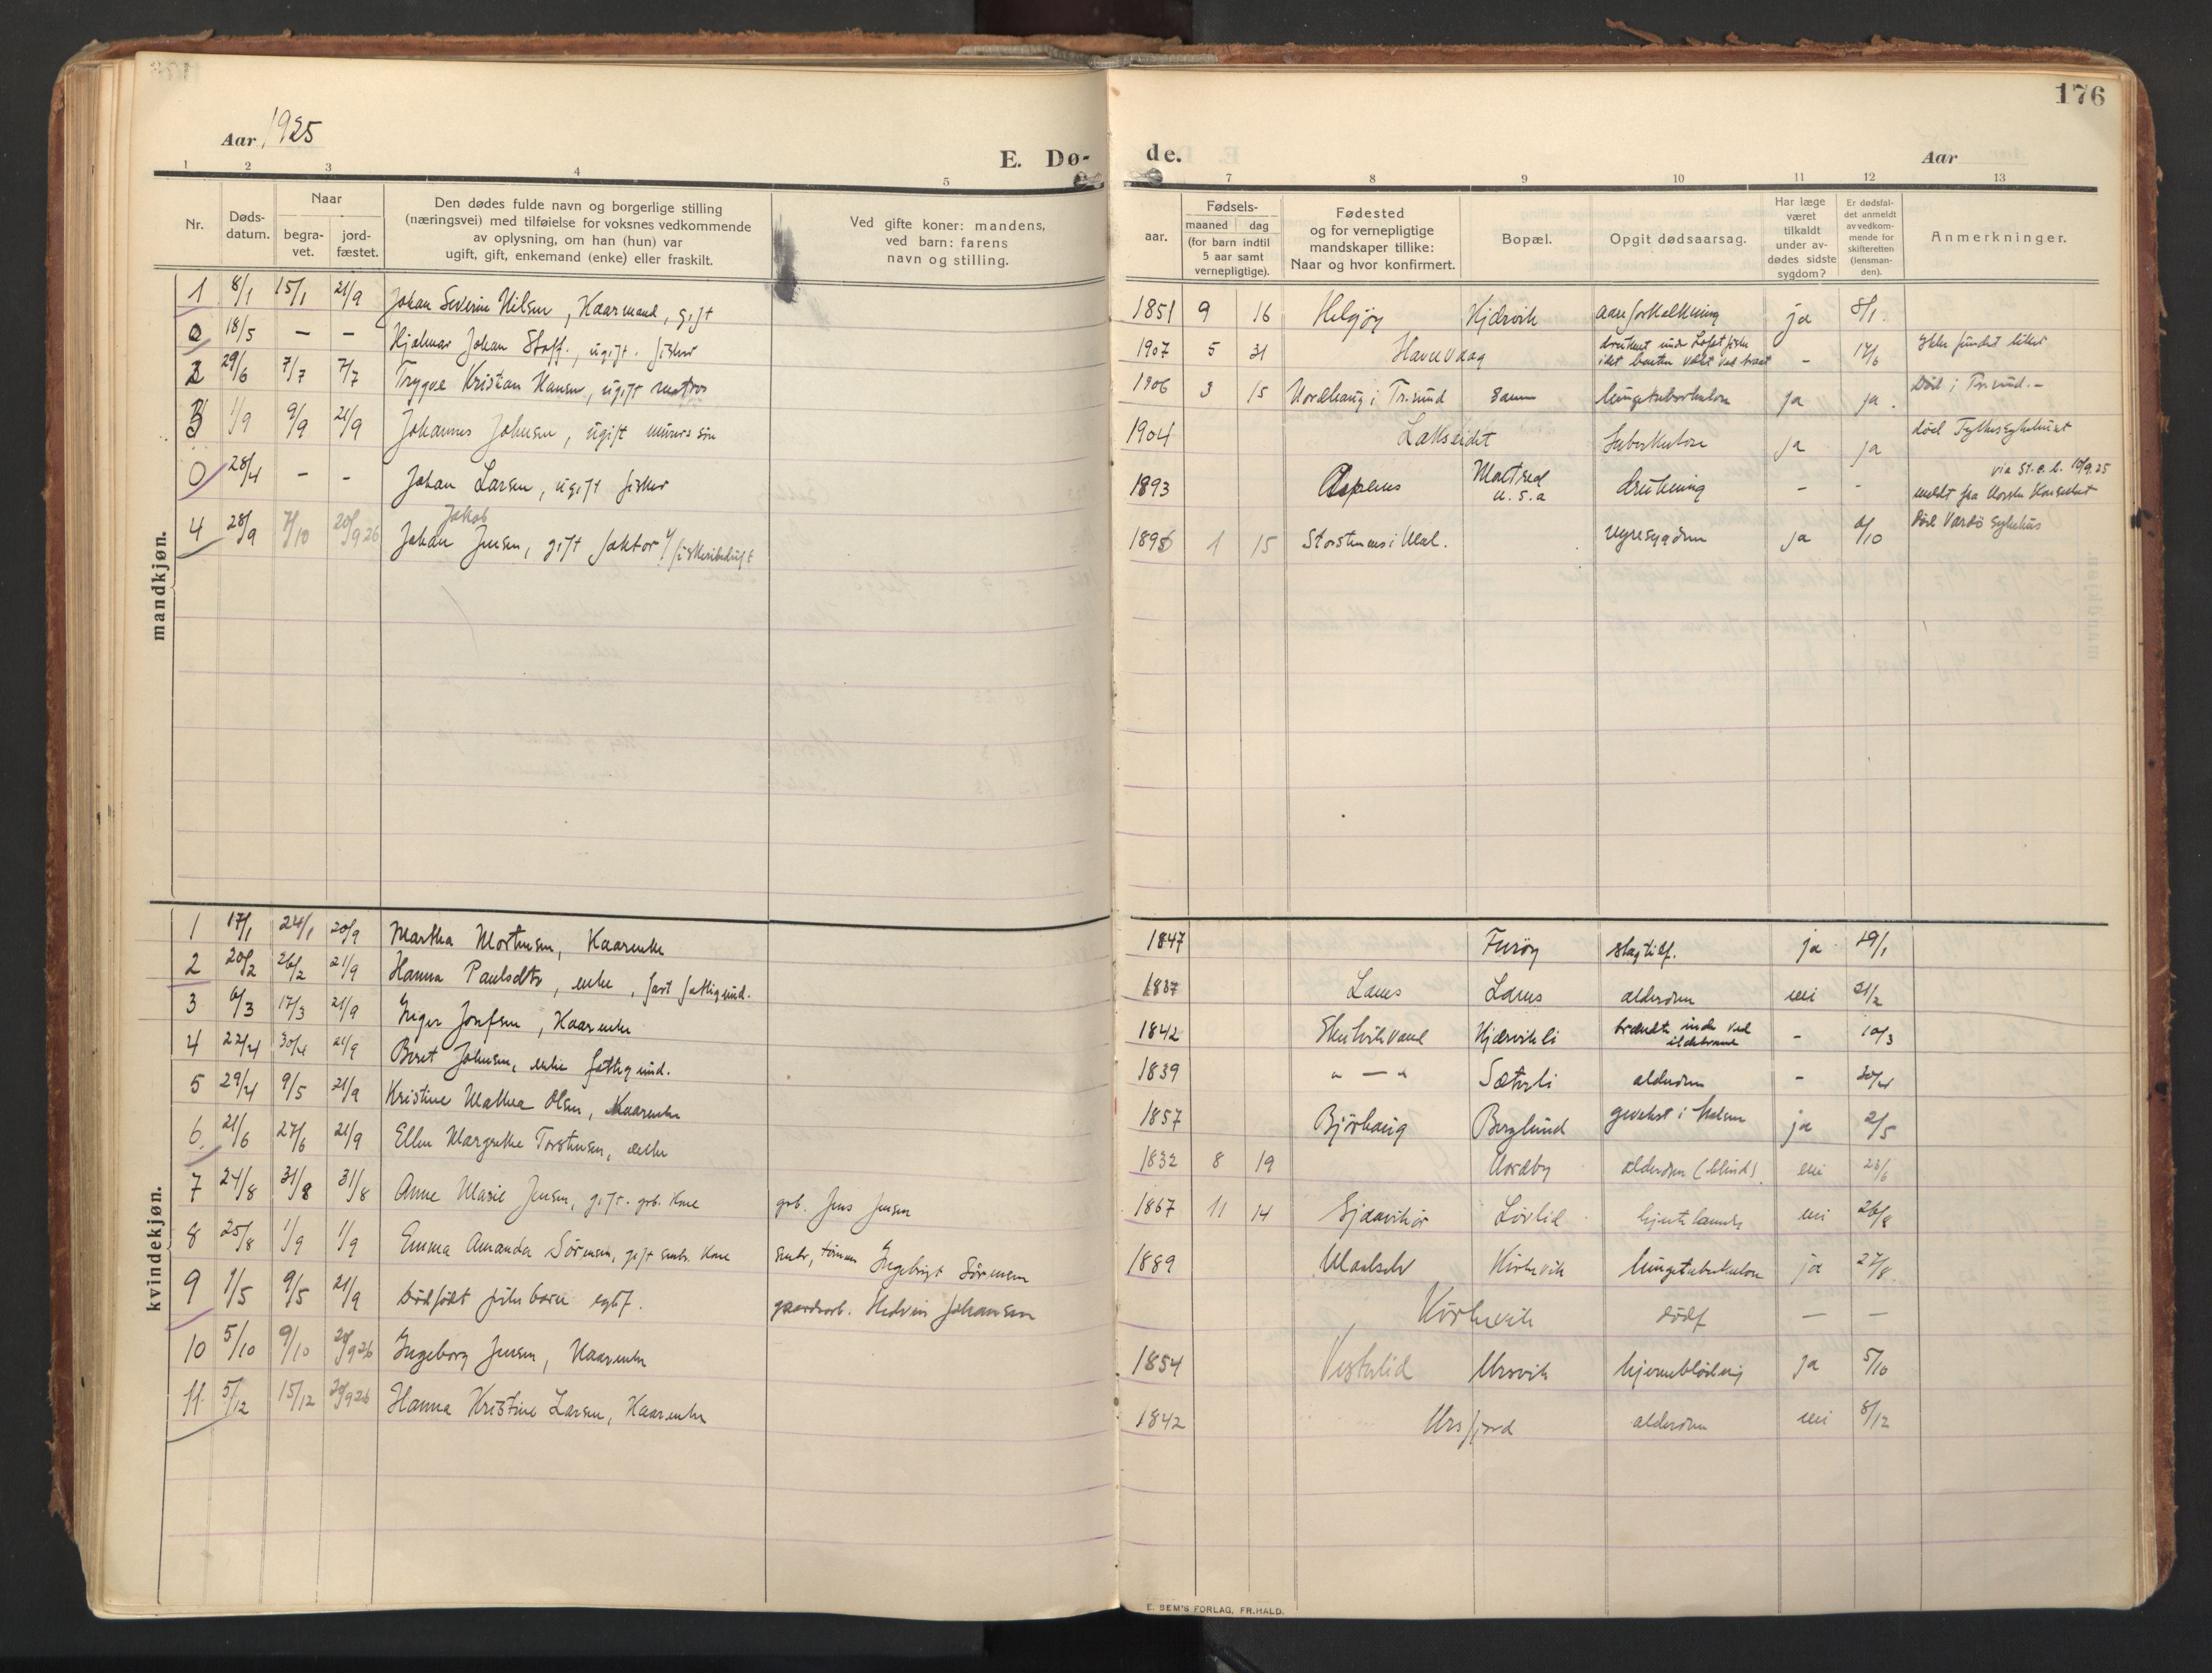 176
Aar 1925
E. Dø-
de.
Aar
1 2 3 4 5
7 8 9 10 11 12 13
Nr.
Døds-
datum.
Naar
begra-
vet.
jord-
fæstet.
Den dødes fulde navn og borgerlige stilling
(næringsvei) med tilføielse for voksnes vedkommende
av oplysning, om han (hun) var
ugift, gift, enkemand (enke) eller fraskilt.
Ved gifte koner: mandens,
ved barn: farens
navn og stilling.
Fødsels-
aar.
maaned dag
(for barn indtil
5 aar samt
vernepligtige).
Fødested
og for vernepligtige
mandskaper tillike:
Naar og hvor konfirmert.
Bopæl.
Opgit dødsaarsag.
Har læge
været
tilkaldt
under av-
dødes sidste
sygdom?
Er dødsfal-
det anmeldt
av vedkom-
mende for
skifteretten
(lensman-
den).
Anmerkninger.
mandkjøn.
1 8/1 15/1 21/9 Johan Severin Nilsen, Kaarmand, gift 1851 9 16 Helgøy Kjærvik aareforkalkning ja 8/1.
0 18/5 – – Hjalmar Johan Stoff., ugift. fisker 1907 5 31 Havnvaag druknet under Lofotfiske
idet baaten – 14/6 Ikke fundet liket
2 29/6 7/7 7/7 Trygve Kristian Hansen, ugift matros 1906 3 15 Nordhaug i Tr.sund samme lungetuberkulose ja ja. Død i Tr.sund.–
3 1/9 9/9 21/9 Johannes Johnsen, ugift 1904 Lakseidet tuberkulose ja ja død Fylkessykehuset
0 28/4 – – Johan Larsen, ugift fisker 1893 U.S.A drukning – – via St.e.b. 10/9.25
meldt fra Norske Konsulat
Jakob
4 28/9 7/10 20/9 26 Johan Jensen, gift faktor v/ fiskeribedrift 1895 1 15 Storstennes i Mal. nyresygdom ja /10 Død Vardø sykehus
kvindekjøn.
1 17/1 24/1 20/9 Martha Mortensen, Kaarenke 1847 Furøy slagtilf. ja 19/1
2 20/2 26/2 21/9 Hanna Paulsdtr, enke, fast fattigund. 1837 Lanes Lanes alderdom nei 21/2
3 6/3 17/3 21/9 Inger Josefsen, Kaarenke 1842 Kjærvikli brændte inde ved
ildebrand – 10/3
4 22/4 30/4 21/9 Beret Johnsen, enke fattigund. 1839 " — " Sæterli alderdom – 30/4
5 29/4 9/5 21/9 Kristine Mathea Olsen, Kaarenke 1857 Bjørhaug Berglund gevekst i halsen ja 2/5
6. 21/6 27/6 21/9 Ellen Margrethe Torstensen, enke 1832 8 19 Nordby alderdom (blind). nei 23/6
7 24/8 31/8 31/8 Anne Marie Jensen, gift. grb. Kone grb. Jens Jensen 1867 11 14 Løvlid hjertelammelse nei 26/8
8 25/8 1/9 1/9 Emma Amanda Sørensen, gift smbr. Kone smbr, tømm Ingebrigt Sørensen 1889 Maalselv lungetuberkulose ja 27/8
9 1/5 9/5 21/9 dødfødt pikebarn egtef. gaardsarb. Hedvin Johansen dødf – –
10 5/10 9/10 20/9 26 Ingeborg Jensen, Kaarenke 1854 Vesterlid Mrsvik hjerneblødning ja 5/10
11 5/12 15/12 20/9 26 Hanna Kristine Larsen, Kaarenke 1842 Mrsfjord alderdom nei 8/12
E. SEM'S FORLAG, FR.HALD.